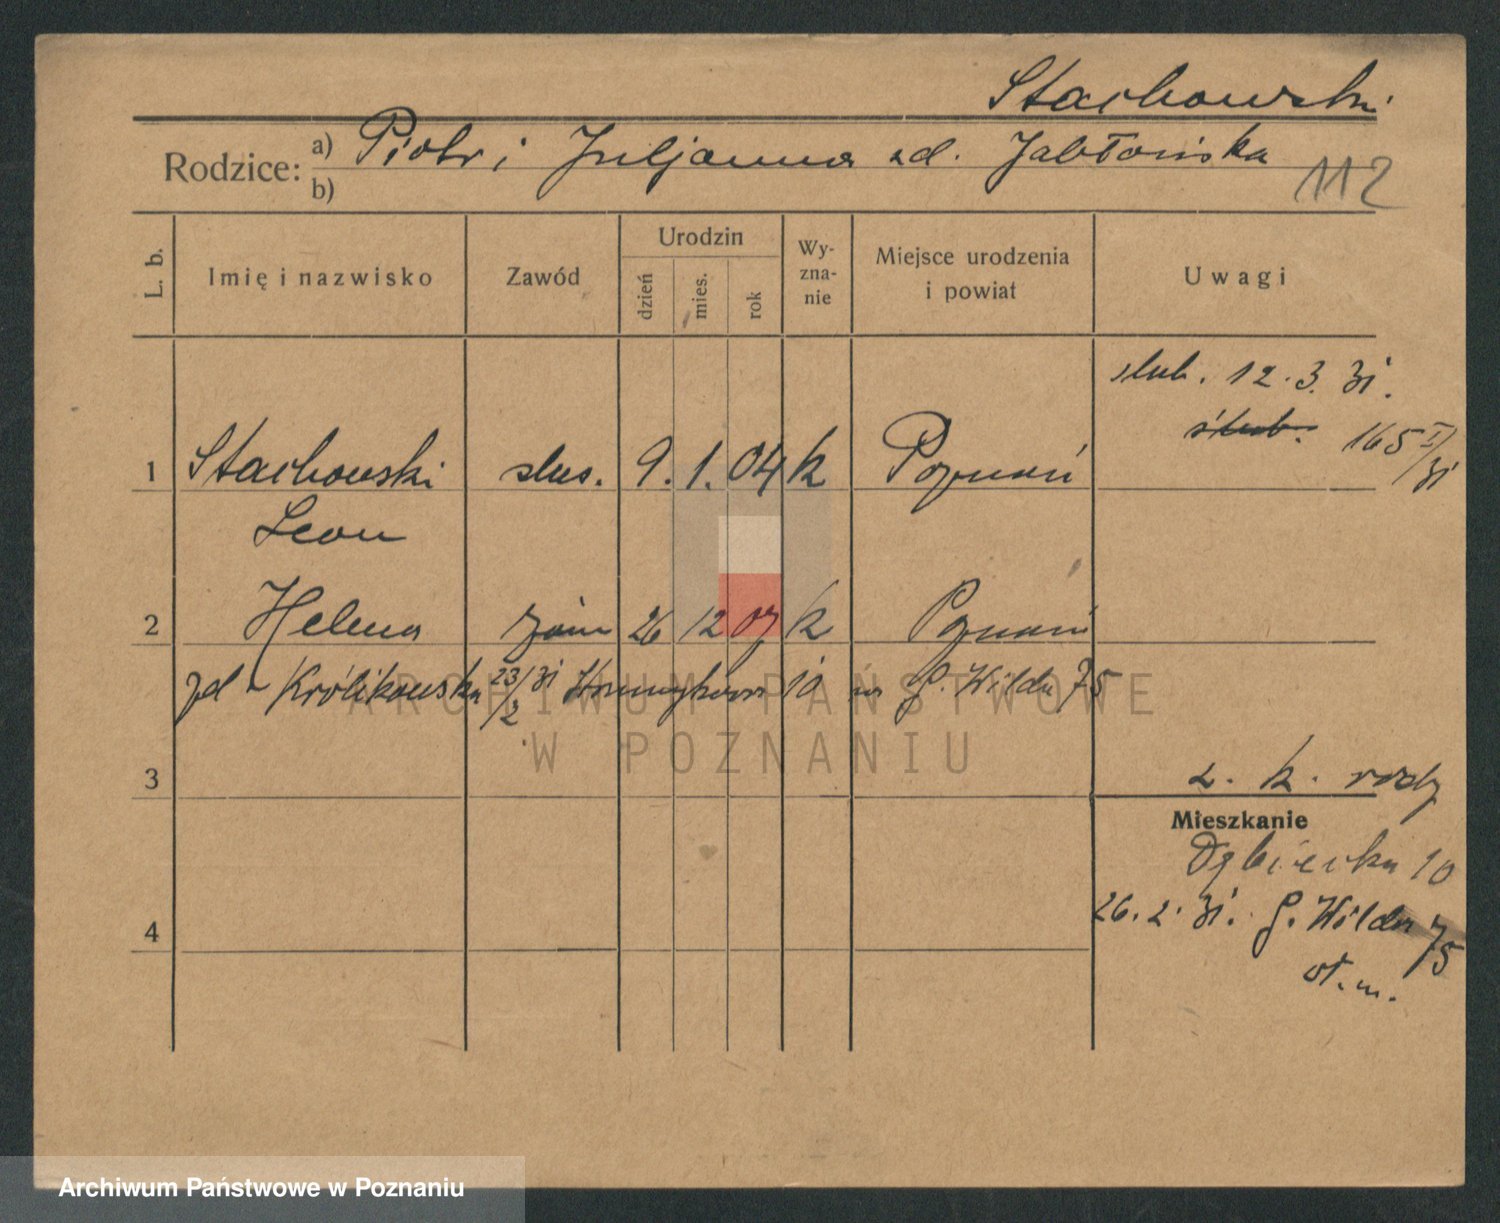 Stachowski
Rodzice: a) Piotr i Juljanna zd. Jabłońska
b)
112
L. b. Imię i nazwisko Zawód Urodzin dzień mies. rok Wy-zna-nie Miejsce urodzenia i powiat Uwagi
ślub. 12.3.31.
ślub. 165 I/31
1 Stachowski ślus. 9. 1. 04 k Poznań
Leon
2 Helena żona 26 12 07 k Poznań
zd Królikowska 23/2 31 10 na G. Wilda 75
ARCHIWUM PAŃSTWOWE
W POZNANIU
3
z. k. rodz
Mieszkanie
Dębiecka 10
4
26.2.31. G. Wilda 75
ot. m.
Archiwum Państwowe w Poznaniu